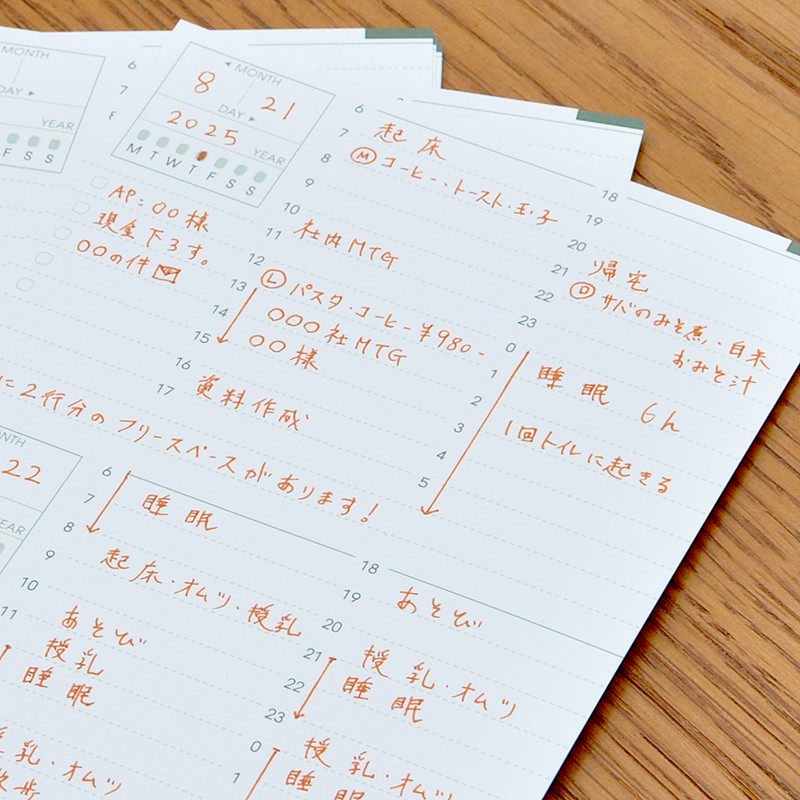 MONTH
DAY ▶
YEAR
F S S
6
7
8
◀ MONTH
8 21
DAY ▶
2025
YEAR
M T W T F S S
AP:〇〇様
現金下ろす。
〇〇の件
6
7 起床
8 Ⓜ コーヒー・トースト・玉子
9
10
11 社内MTG
12
13 Ⓛ パスタ・コーヒー ¥980-
14 〇〇〇社MTG
15 〇〇様
16
17 資料作成
18
19
20
21 帰宅
22 Ⓓ サバのみそ煮・白米
23 おみそ汁
0
1 睡眠 6h
2
3 1回トイレに起きる
4
5
に2行分のフリースペースがあります!
MONTH
22
YEAR
6
7 睡眠
8
9 起床・オムツ・授乳
10
11 あそび
授乳
睡眠
乳・オムツ
散歩
18
19 あそび
20
21 授乳・オムツ
22 睡眠
23
0 授乳・オムツ
1 睡眠